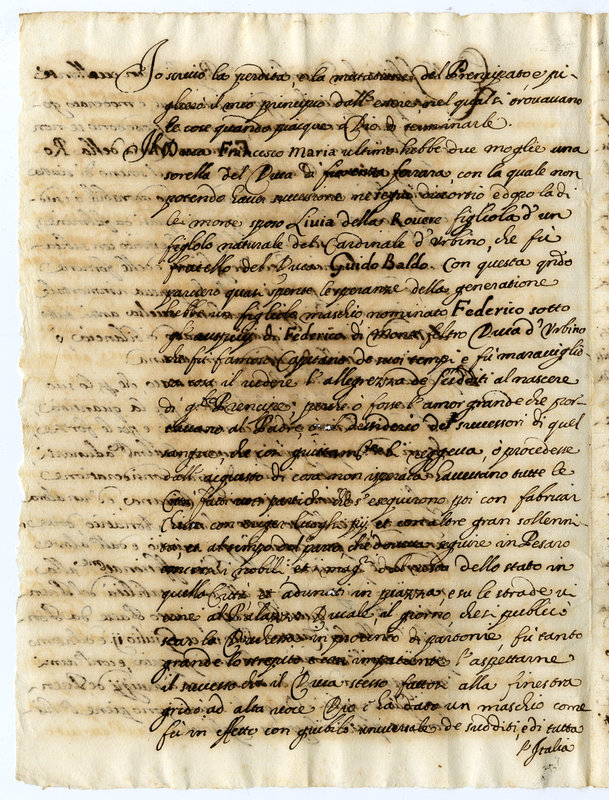 Io scrivo la perdita, e la mutatione del Prencipato e pi-
gliarò il mio principio dall'essere, nel qual si trovavano
le cose quando piacque à Dio di terminarle.
Il Duca Francesco Maria ultimo hebbe due moglie una
sorella del Duca di ferrara con la quale non
potendo haver successione ne seguì divortio e dopo la di
lei morte sposò Livia della Rovere figliola d'un
figliolo naturale del Cardinale d'Urbino, che fù
fratello del Duca Guido Baldo. Con questa qndo
parevano quasi spente le speranze della generatione
hebbe un figliolo maschio nominato Federico sotto
gl'auspicij di Federico di Monte feltro Duca d'Urbino
che fù famoso Capitano de suoi tempi e fù maraviglio-
sa cosa il vedere l'allegrezza de sudditi al nascere
di qto Prencipe, perche ò fosse l'amor grande che por-
tavano al Padre, o il desiderio de successori di quel
sangue, che così giustamte li reggeva, ò procedesse
dall'acquisto di cosa non sperata havevano tutte le
Città fatti voti particolari che s'esseguirono poi con fabricar
Chiese con erger luoghi pij, et con altre gran sollenni-
tà et al tempo del parto che doveva seguire in Pesaro
concorsi i nobili et magri del resto dello stato in
quella Città et adunati in piazza, e su le strade vi-
cine al Palazzo Ducale, il giorno, che si publicò
star la Duchessa in procinto di partorire, fù tanto
grande lo strepito e così impatiente l'aspettarne
il successo che il Duca stesso fattosi alla finestra
gridò ad alta voce Dio c'hà dato un maschio come
fù in effetto con giubilo universale de sudditi, e di tutta
l'Italia